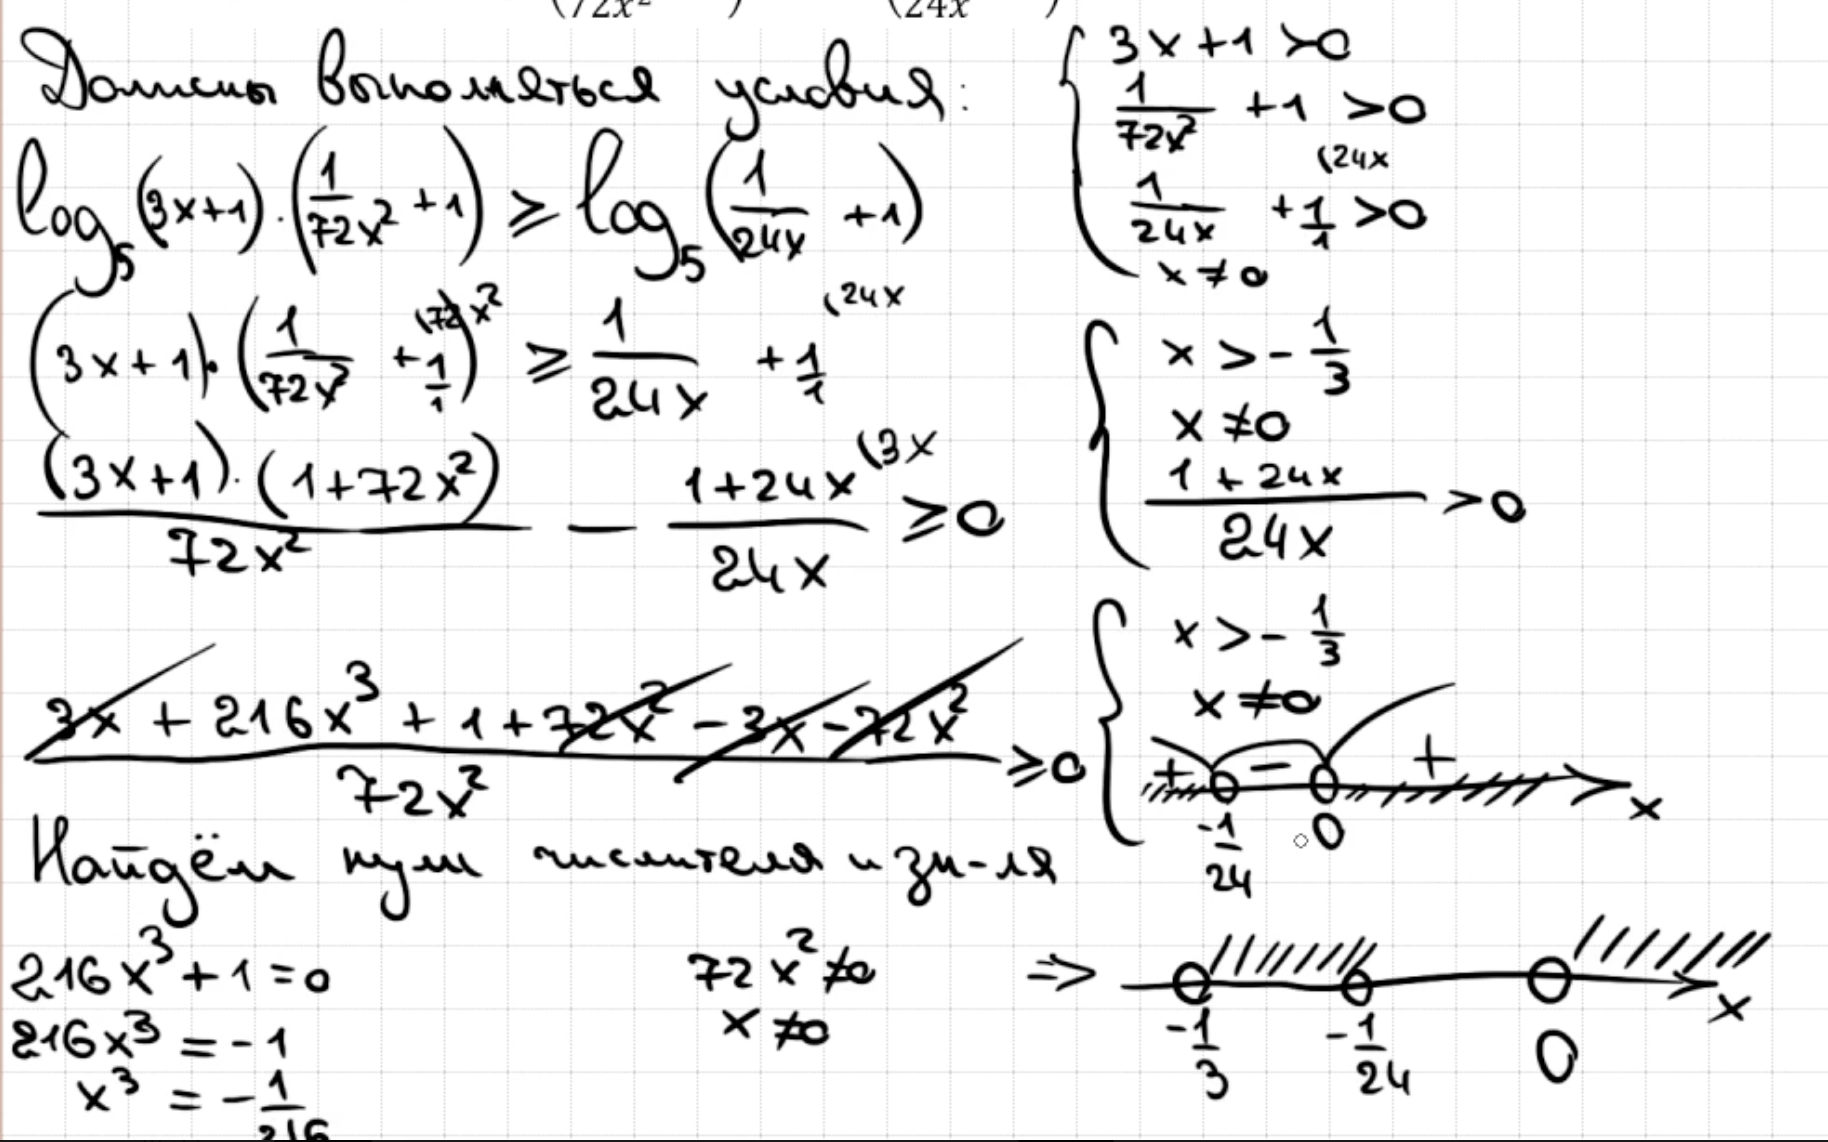 (72x² ) (24x )
Должны выполняться условия:
log₅(3x+1)·(1/72x² +1) ≥ log₅(1/24x +1)
(3x+1)·(1/72x² + 1/1)(72x² ≥ 1/24x + 1/1 (24x
(3x+1)·(1+72x²)/72x² − 1+24x/24x (3x ≥0
3x + 216x³ + 1 + 72x² − 3x − 72x²/72x² ≥0
Найдём нули числителя и зн-ля
216x³ + 1 = 0
216x³ = −1
x³ = −1/216
72x² ≠0
x ≠0
{ 3x+1 >0
1/72x² +1 >0
1/24x + 1/1 >0 (24x
x ≠ 0
{ x > −1/3
x ≠0
1+24x/24x >0
{ x > −1/3
x ≠0
+ − + x
−1/24 0
⇒ x
−1/3 −1/24 0